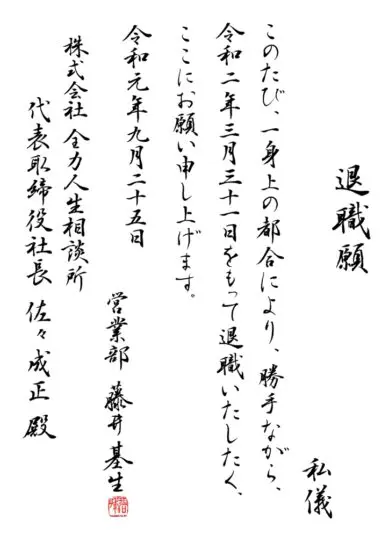 退職願
私儀
このたび、一身上の都合により、勝手ながら、
令和二年三月三十一日をもって退職いたしたく、
ここにお願い申し上げます。
令和元年九月二十五日
営業部 藤井基生
株式会社 全力人生相談所
代表取締役社長 佐々成正 殿